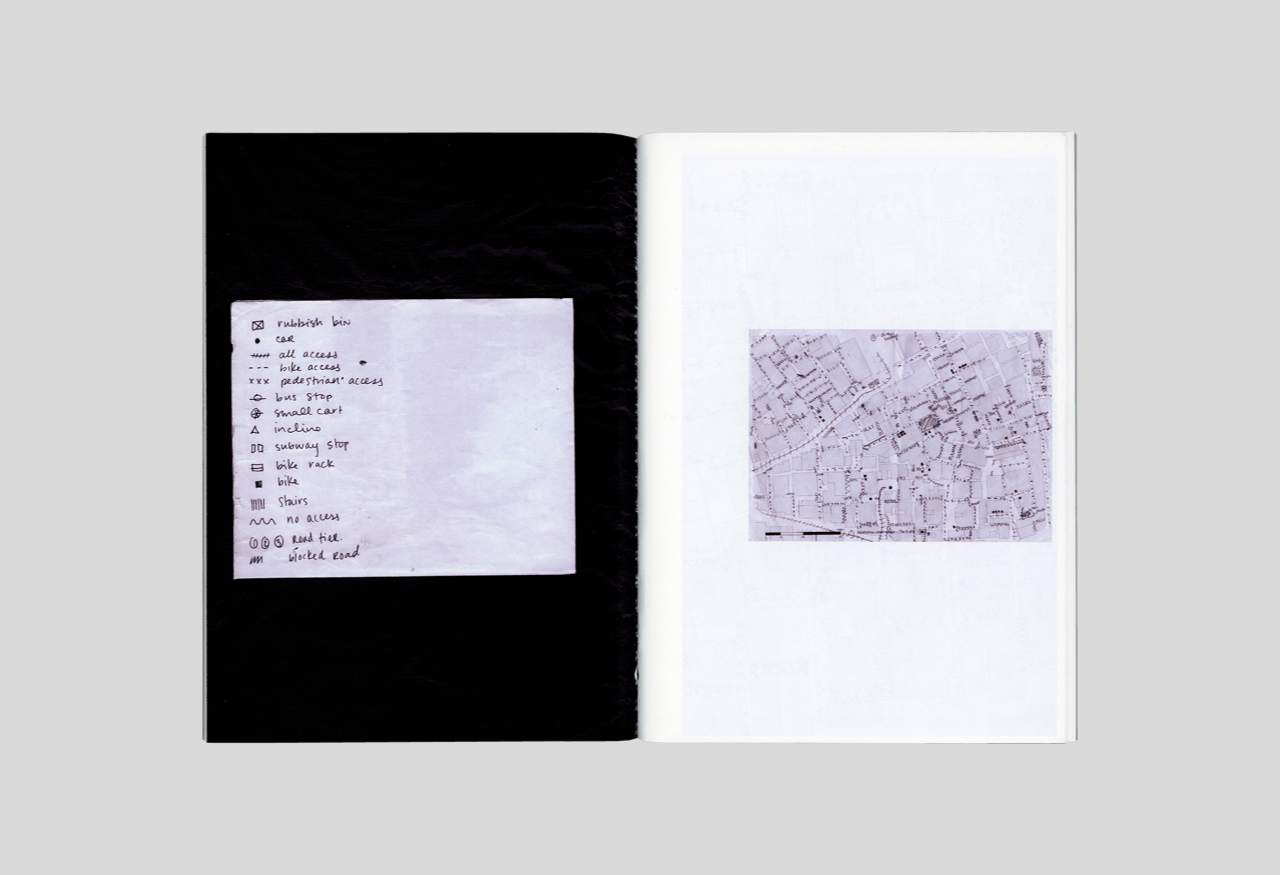 rubbish bin
car
all access
bike access
pedestrian access
bus stop
small cart
incline
subway stop
bike rack
bike
stairs
no access
① ② ③ Road tier.
blocked road